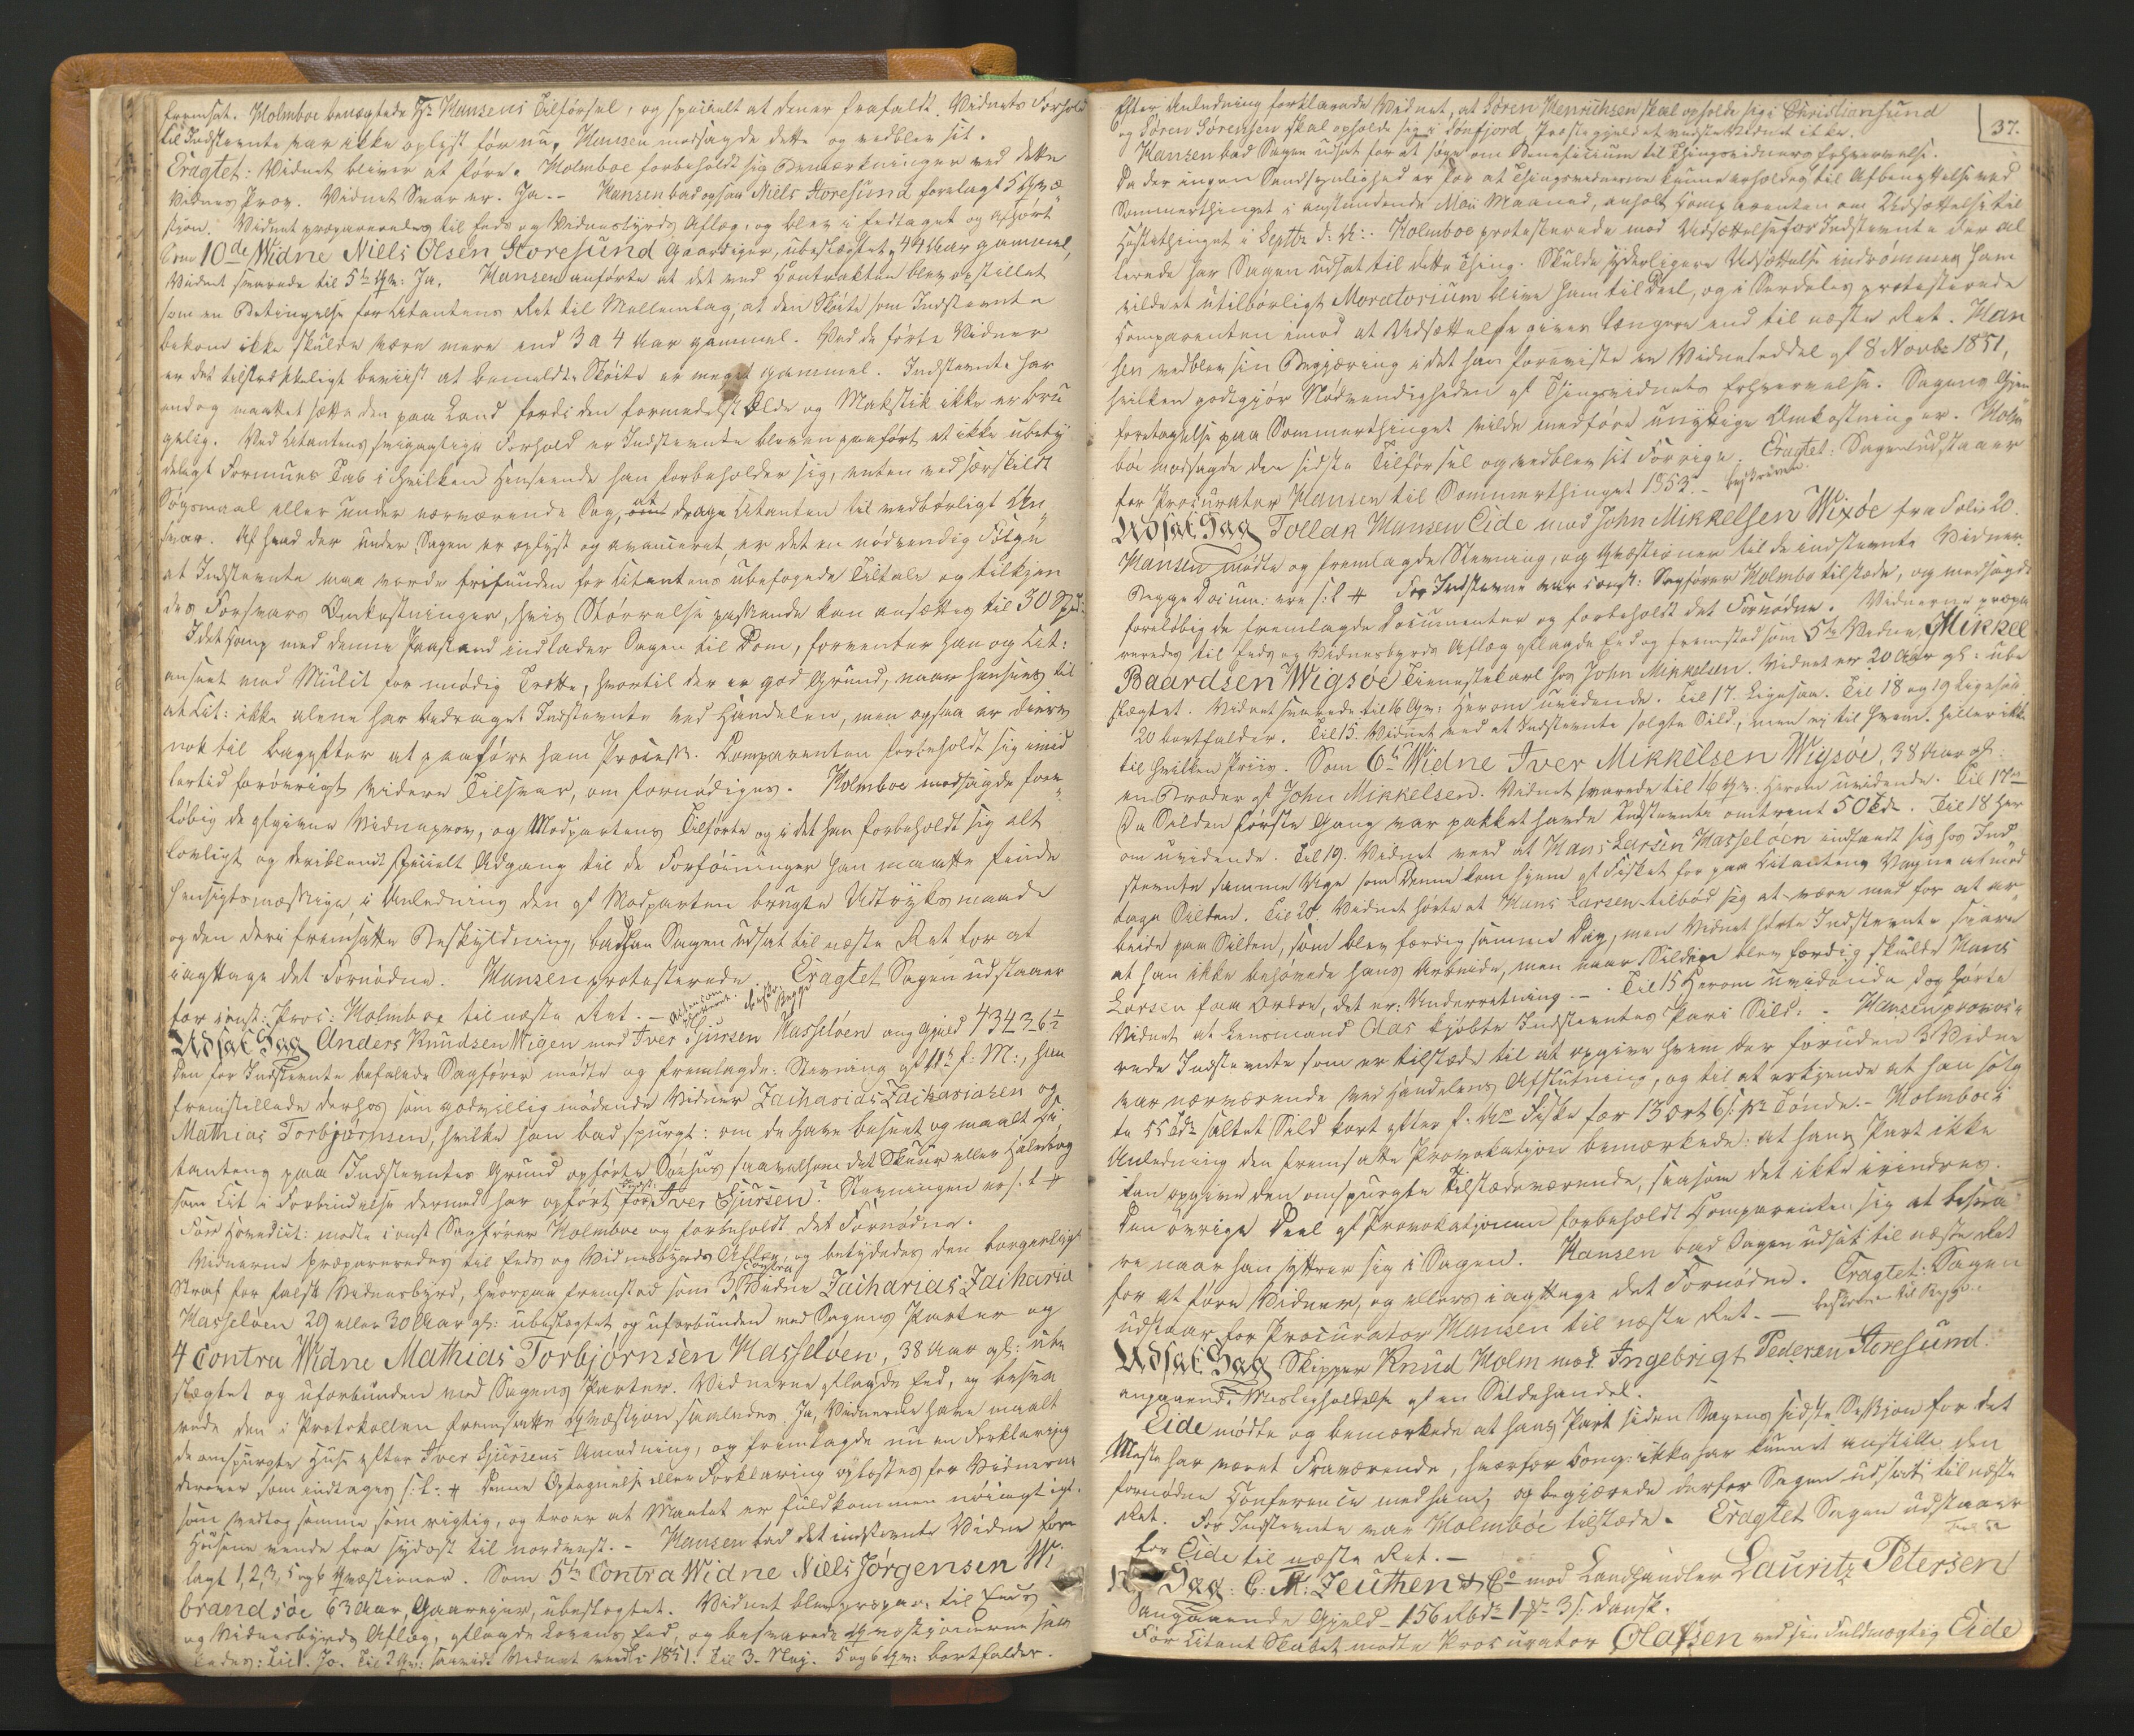 fremsat. Holmboe benægtede Hr Hansens Tilførsel, og specielt at denne frafaldt. Vidnets Forhold
til Indstevnte var ikke oplyst før nu. Hansen modsagde dette og vedblev sit.
Eragtet: Vidnet bliver at føre. Holmboe forbeholdt sig Bemærkninger ved dette
Vidnes Prov. Vidnet Svarer. Ja. - Hansen bad ogsaa Niels Storesund forelagt 5 Qvæ
stion. Vidnet præpareredes til Eeds og Vidnesbyrds Aflæg, og blev i Eedtaget og afhørt
som 10de Widne Niels Olsen Storesund Gaardeier, ubeslægtet, 44 Aar gammel,
Vidnet svarede til 5te Qv: Ja. Hansen anførte at det ved Contrakten blev opstillet
som en Betingelse for Citantens Ret til Mellemlag, at den Skøite som Indstevnte
bekom ikke skulde være mere end 3 a 4 Aar gammel. Ved de førte Vidner
er det tilstrækkeligt beviist at bemeldte Skøite er meget gammel. Indstevnte har
endog maattet sætte den paa Land fordi den formedelst Ælde og Makstik ikke er bru
gelig. Ved Citantens svigagtige Forhold er Indstevnte bleven paaført et ikke ubety
deligt Formues Tab i hvilken Henseende han forbeholder sig, enten ved særskildt
Søgsmaal eller under nærværende Sag, at drage Citanten til vedbørligt An
svar. Af hvad der under Sagen er oplyst og avanceret, er det en nødvendig Følge
at Indstevnte maa vorde frifunden for Citantens ubefogede Tiltale og tilkjen
des Forsvars Omkostninger, hvis Størrelse passende kan ansættes til 30 Spd:
Idet Comp med denne Paastand indlader Sagen til Dom, forventer han og Cit:
anseet med Mulct for unødig Trætte, hvortil der er god Grund, naar henses til
at Cit: ikke alene har bedraget Indstevnte ved Handelen, men ogsaa er diærv
nok til bagefter at paaføre ham Proces. Comparenten forbeholdt sig imid
lertid forøvrigt videre Tilsvar, om fornødiges. Holmboe modsagde fore
løbig de afgivne Vidneprov, og Modpartens Tilførte og i det han forbeholdt sig alt
lovligt og deriblandt specielt Adgang til de Forføininger han maatte finde
hensigtsmæssige, i Anledning den af Modparten brugte Udtryksmaade
og den deri fremsatte Beskyldning, bad han Sagen udsat til næste Ret for at
iagttage det Fornødne. Hansen protesterede Eragtet Sagen udstaaer
for const: Proc: Holmboe til næste Ret. -
Udsat Sag Anders Knudsen Wigen mod Iver Sjursen Hasseløen ang Gjæld
Den for Indstevnte befalede Sagfører mødte og fremlagde: Stevning af 11te f: M:, han
fremstillede derhos som godvillig mødende Vidner Zacharias Zachariasen og
Mathias Torbjørnsen, hvilke han bad spurgt: om de have beseet og maalt Ci
tantens paa Indstevntes Grund opførte Søehus saavelsom det Skuur eller Halvtag
som Cit i Forbindelse dermed har opført for Iver Sjursen? Stevningen er s. l.
For Hovedcit: mødte const Sagfører Holmboe og forbeholdt det Fornødne.
Vidnerne præpareredes til Eeds og Vidnesbyrds Aflæg, og betydedes den borgerlige
Straf for falsk Vidnesbyrd, hvorpaa fremstod som 3 Contra Vidne Zacharias Zacharia
Hasseløen 29 eller 30 Aar gl: ubeslægtet og uforbunden med Sagens Parter og
4 Contra Widne Mathias Torbjørnsen Hasseløen, 38 Aar gl: ube
slægtet og uforbunden med Sagens Parter. Vidnerne aflagde Eed, og besva
rede den i Protokollen fremsatte Qvæstion saaledes. Ja, Vidnerne have maalt
de omspurgte Huse efter Iver Sjursens Anmodning, og fremlagde nu en Forklaring
derover som indtages s: l: Denne Optegnelse eller Forklaring oplæstes for Vidnerne
som vedtog samme som rigtig, og troer at Maalet er fuldkommen nøiagtigt.
Husene vende fra sydost til nordvest. - Hansen bad det indstevnte Vidne fore
lagt 1, 2, 3, 5 og 6 Qvæstioner. Som 5te Contra Widne Niels Jørgensen Wi
brandsøe 63 Aar, Gaardeier, ubeslægtet. Vidnet blev præpar. til Eeds
og Vidnesbyrds Aflæg, aflagde Lovens Eed, og besvarede Qvæstionerne saa
ledes: Til 1. Ja. Til 2 Qv: saavidt Vidnet veed i 1851. Til 3. Nej. 5 og 6 Qv: bortfalder.
37.
Efter Anledning forklarede Vidnet, at Søren Henrichsen skal opholde sig i Christiansund
og Søren Sørensen skal opholde sig i Sønfjord, Præstegjeldet vidste Vidnet ikke.
Hansen bad Sagen udsat for at søge om Beneficium til Thingsvidners Erhvervelse.
Da der ingen Sandsynlighed er for at Thingsvidnerne kunne erholdes til Afbenyttelse ved
Sommerthinget i anstundende Maii Maaned, anholt Comparenten om Udsættelse til
Høstethinget i Septbr d: A:. Holmboe protesterede mod Udsættelse for Indstevnte der al
lerede har Sagen udsat til dette Thing. Skulde yderligere Udsættelse indrømmes ham
vilde et utilbørligt Moratorium blive ham til Deel, og i Særdeles protesterede
Comparenten imod at Udsættelse gives længere end til næste Ret. Han
sen vedblev sin Begjæring i det han foreviste en Vidneseddel af 8 Novbr 1851,
hvilken godtgjør Nødvendigheden af Thingsvidnets Erhvervelse. Sagens Gjen
foretagelse paa Sommerthinget vilde medføre unyttige Omkostninger. Holm
boe modsagde den sidste Tilførsel og vedblev sit Forrige. Eragtet: Sagen udstaaer
for Procurator Hansen til Sommerthinget 1853. - beskreven
Udsat Sag Tollak Hansen Eide mod John Mikkelsen Wixøe fra Folio 20.
Hansen mødte og fremlagde Stevning, og Qvæstioner til de indstevnte Vidner.
Begge Docum: ere s: l For Indstevnte var const: Sagfører Holmbo tilstæde, og modsagde
foreløbig de fremlagde Documenter og forbeholdt det Fornødne. Vidnerne præpa
reredes til Eeds og Vidnesbyrds Aflæg aflagde Eed og fremstod som 5te Vidne, Mikkel
Baardsen Wigsøe Tienestekarl hos John Mikkelsen. Vidnet er 20 Aar gl: ube
slægtet. Vidnet svarede til 16 Qv: Herom uvidende. Til 17. Ligesaa. Til 18 og 19 Ligesaa
20 bortfalder. Til 15. Vidnet veed at Indstevnte solgte Sild, men ej til hvem, heller ikke
til hvilken Priis. Som 6te Widne Iver Mikkelsen Wigsøe, 38 Aar gl:
en Broder af John Mikkelsen. Vidnet svarede til 16 Qv: Herom uvidende. Til 17de
Da Silden første Gang var pakket havde Indstevnte omtrent 50 Tdr. Til 18 Her
om uvidende. Til 19. Vidnet veed at Hans Larsen Hasseløen indfandt sig hos Ind
stevnte samme Uge som denne kom hjem af Fisket for paa Citantens Vegne at mod
tage Silden. Til 20. Vidnet hørte at Hans Larsen tilbød sig at være med for at ar
beide paa Silden, som blev færdig samme Dag, men Vidnet hørte Indstevnte svare
at han ikke behøvede hans Arbeide, men naar Silden blev færdig skulde Hans
Larsen faa Ordre, det er: Underretning. - Til 15 Herom uvidende dog hørte
Vidnet at Lensmand Aas kjøbte Indstevntes Pari Sild: - Hansen provoce
rede Indstevnte som er tilstæde til at opgive hvem der foruden 3 Vidne
var nærværende ved Handelens Afslutning, og til at erkjende at han solg
te 55 Tdr saltet Sild kort efter f. Aars Fiske for 13 ort 6 s. pr Tønde. - Holmboe i
Anledning den fremsatte Provokation bemærkede: at hans Part ikke
kan opgive den omspurgte Tilstedeværende, saasom det ikke erindres.
Den øvrige Deel af Provokationen forbeholdt Comparenten sig at besva
re naar han ytrer sig i Sagen. Hansen bad Sagen udsat til næste Ret
for at føre Vidner, og ellers iagttage det Fornødne. Eragtet: Sagen
udstaar for Procurator Hansen til næste Ret. - beskreven til Begge
Udsat Sag Skipper Knud Holm mod Ingebrigt Pedersen Storesund.
angaaende Misligholdelse af en Sildehandel.
Eide mødte og bemærkede at hans Part siden Sagens sidste Session for det
Meste har været Fraværende, hvorfor Comp: ikke har kunnet anstille den
fornødne Conference med ham, og begjærede derfor Sagen udsat til næste
Ret. For Indstevnte var Holmboe tilstæde. Eragtet Sagen udstaaer
for Eide til næste Ret. -
Sag: C. M. Zeuthen & Co mod Landhandler Lauritz Petersen
angaaende Gjæld 156 Rbdr 1 3 s. dansk.
For Citantskabet mødte Procurator Olafsen ved sin Fuldmægtig Eide